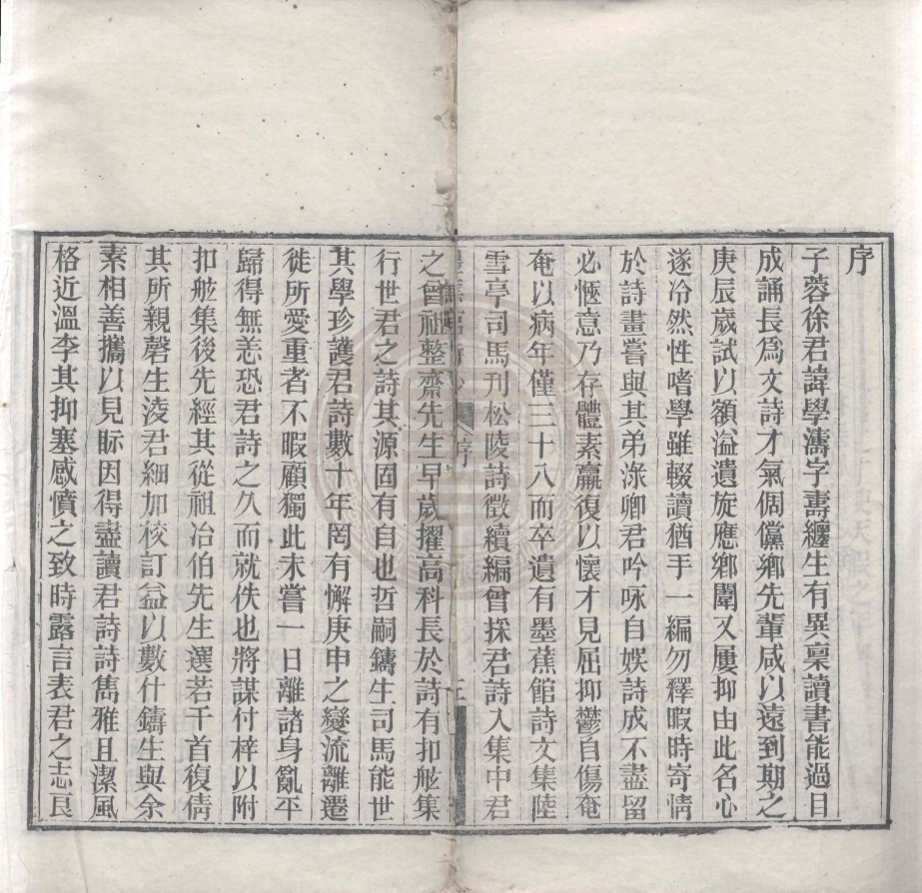 序
子蓉徐君諱學濤字壽纏生有異稟讀書能過目
成誦長爲文詩才氣倜儻鄉先輩咸以遠到期之
庚辰歲試以額溢遺旋應鄉闈又屢抑由此名心
遂冷然性嗜學雖輟讀猶手一編勿釋暇時寄情
於詩畫嘗與其弟淥卿君吟咏自娛詩成不盡留
必愜意乃存體素羸復以懷才見屈抑鬱自傷奄
奄以病年僅三十八而卒遺有墨蕉館詩文集陸
雪亭司馬刊松陵詩徵續編曾採君詩入集中君
序
之曾祖整齋先生早歲擢高科長於詩有扣舷集
行世君之詩其源固有自也哲嗣鑄生司馬能世
其學珍護君詩數十年罔有懈庚申之變流離遷
徙所愛重者不暇顧獨此未嘗一日離諸身亂平
歸得無恙恐君詩之久而就佚也將謀付梓以附
扣舷集後先經其從祖冶伯先生選若干首復倩
其所親磬生淩君細加校訂益以數什鑄生與余
素相善攜以見眎因得盡讀君詩詩雋雅且潔風
格近溫李其抑塞感憤之致時露言表君之志良